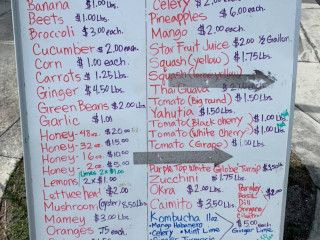 Banana $1.00 Lbs.
Beets $1.00 Lbs.
Broccoli $3.00 each.
Cucumber $2.00 each
Corn $1.00 each.
Carrots $1.25 Lbs.
Ginger $4.50 Lbs.
Green Beans $2.00 Lbs
Garlic $1.00
Honey-48oz. $20.00
Honey-32oz $15.00
Honey-16oz $10.00
Honey-2oz $5.00
Lemons 2x$1.00
Lettuce head $2.00
Mushroom (oyster) 8.50 Lbs
Mamey $3.00 Lbs.
Oranges .75 each
Celery $2.00
Pineapples $6.00 each.
Mango $2.00 each.
Star Fruit Juice $2.00 1/2 Gallon
Squash (yellow) $1.75 Lbs.
Squash
Thai Guava $2.00 each
Tomato (Big round) $1.50 Lbs.
Yahutia $1.50 Lbs.
Tomato (Black cherry) $1.00
Tomato (White cherry) $1.00
Tomato (Grape) $1.00 Lbs.
Purple Top White Globe Turnip
Zucchini $1.75 Lbs.
Okra $2.00 Lbs.
Caimito $3.50 Lbs
Parsley
Basil
Dill
Cilantro
$2.00
Kombucha 11oz
-Mango Habanero
-Celery + Mint Lime